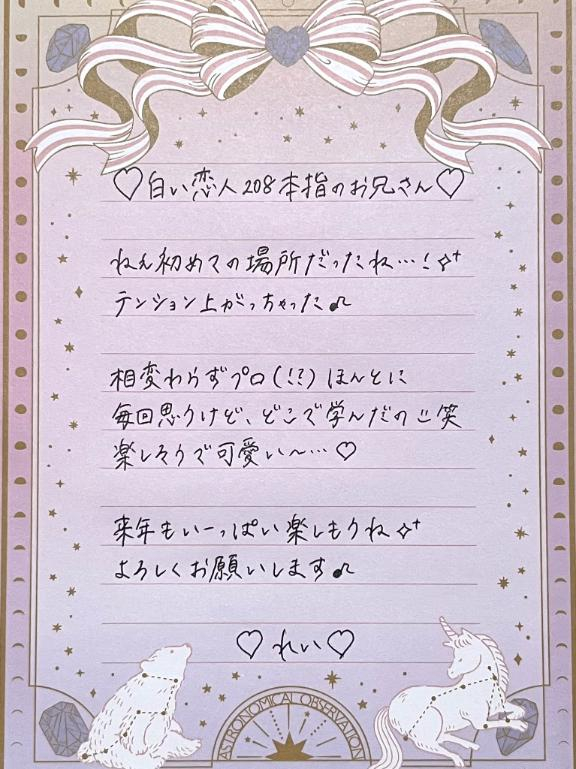 ♡白い恋人208本指のお兄さん♡
ねえ初めての場所だったね…!✧⁺
テンション上がっちゃった♫
相変わらずプロ(!?)ほんとに
毎回思うけど、どこで学んだの笑
楽しそうで可愛い〜…♡
来年もいーっぱい楽しもうね✧⁺
よろしくお願いします♫
♡れい♡
ASTRONOMICAL OBSERVATION